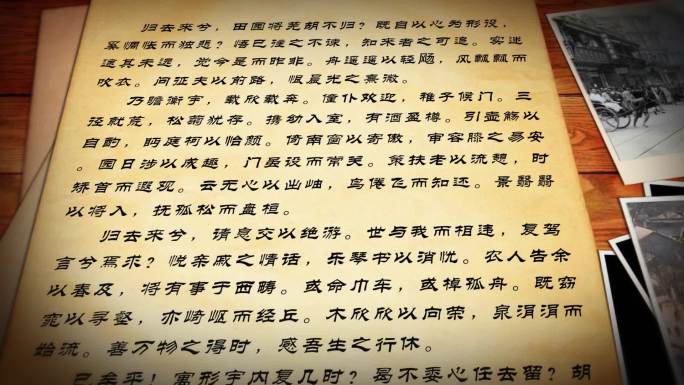 归去来兮，田园将芜胡不归？既自以心为形役，
奚惆怅而独悲？悟已往之不谏，知来者之可追。实迷
途其未远，觉今是而昨非。舟遥遥以轻飏，风飘飘而
吹衣。问征夫以前路，恨晨光之熹微。
乃瞻衡宇，载欣载奔。僮仆欢迎，稚子候门。三
径就荒，松菊犹存。携幼入室，有酒盈樽。引壶觞以
自酌，眄庭柯以怡颜。倚南窗以寄傲，审容膝之易安
。园日涉以成趣，门虽设而常关。策扶老以流憩，时
矫首而遐观。云无心以出岫，鸟倦飞而知还。景翳翳
以将入，抚孤松而盘桓。
归去来兮，请息交以绝游。世与我而相违，复驾
言兮焉求？悦亲戚之情话，乐琴书以消忧。农人告余
以春及，将有事于西畴。或命巾车，或棹孤舟。既窈
窕以寻壑，亦崎岖而经丘。木欣欣以向荣，泉涓涓而
始流。善万物之得时，感吾生之行休。
已矣乎！寓形宇内复几时？曷不委心任去留？胡